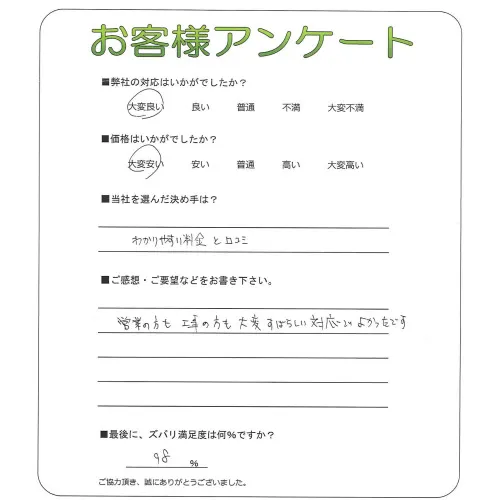 お客様アンケート
■弊社の対応はいかがでしたか？
大変良い 良い 普通 不満 大変不満
■価格はいかがでしたか？
大変安い 安い 普通 高い 大変高い
■当社を選んだ決め手は？
わかりやすい料金と口コミ
■ご感想・ご要望などをお書き下さい。
営業の方も 工事の方も 大変すばらしい対応でよかったです
■最後に、ズバリ満足度は何%ですか？
98 %
ご協力頂き、誠にありがとうございました。